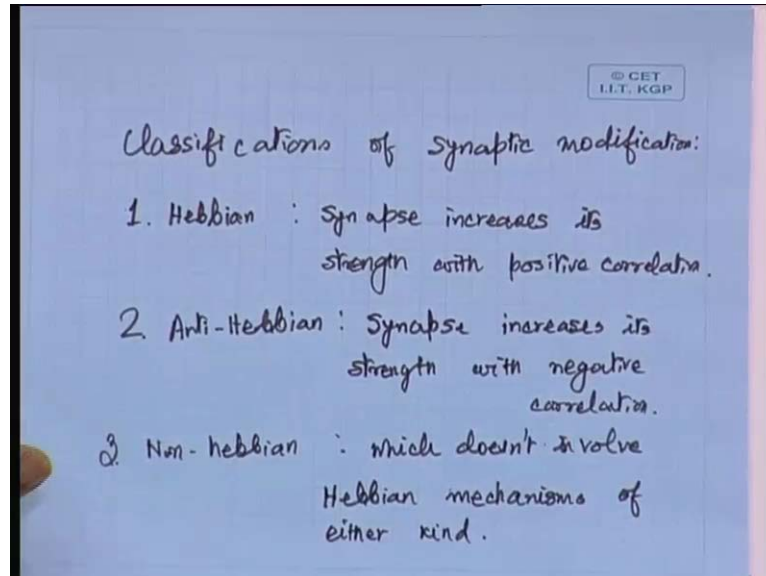 © CET
I.I.T. KGP
Classifications of synaptic modification:
1. Hebbian : Synapse increases its
strength with positive correlation.
2. Anti-Hebbian : Synapse increases its
strength with negative
correlation.
3. Non-hebbian : which doesn't involve
Hebbian mechanisms of
either kind.